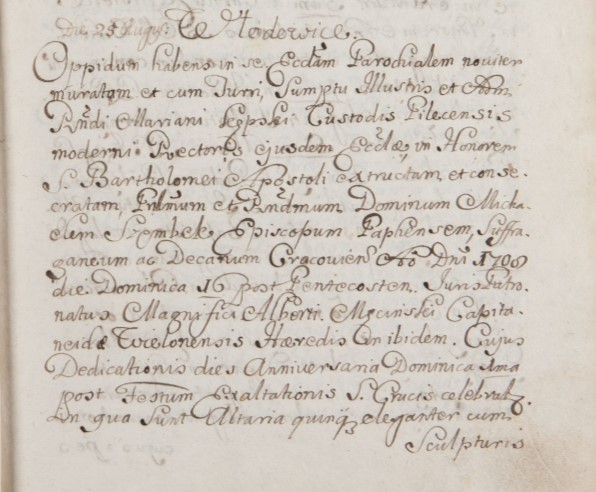 Die 25 Augusti. De Modervice.
Oppidum habens in se Ecclam Parochialem noviter
muratam et cum Turri, Sumptu Illustris et Adm
Rndi Mariani Kępski Custodis Pilecensis
moderni Rectoris ejusdem Ecclæ, in Honorem
S. Bartholomei Apostoli extructam, et conse-
cratam, per Illmum et Rndmum Dominum Micha-
elem Szembek Episcopum Paphensem, Suffra-
ganeum ac Decanum Cracovien Ao Dni 1708
die Dominica 16 post Pentecosten. Juris Patro-
natus Magnifici Alberti Męcinski Capita-
nei de Wielonensis Hæredis in ibidem. Cujus
Dedicationis dies Anniversaria Dominica ima
post Festum Exaltationis S. Crucis celebratz.
In qua sunt Altaria quinqz eleganter cum
Sculpturis